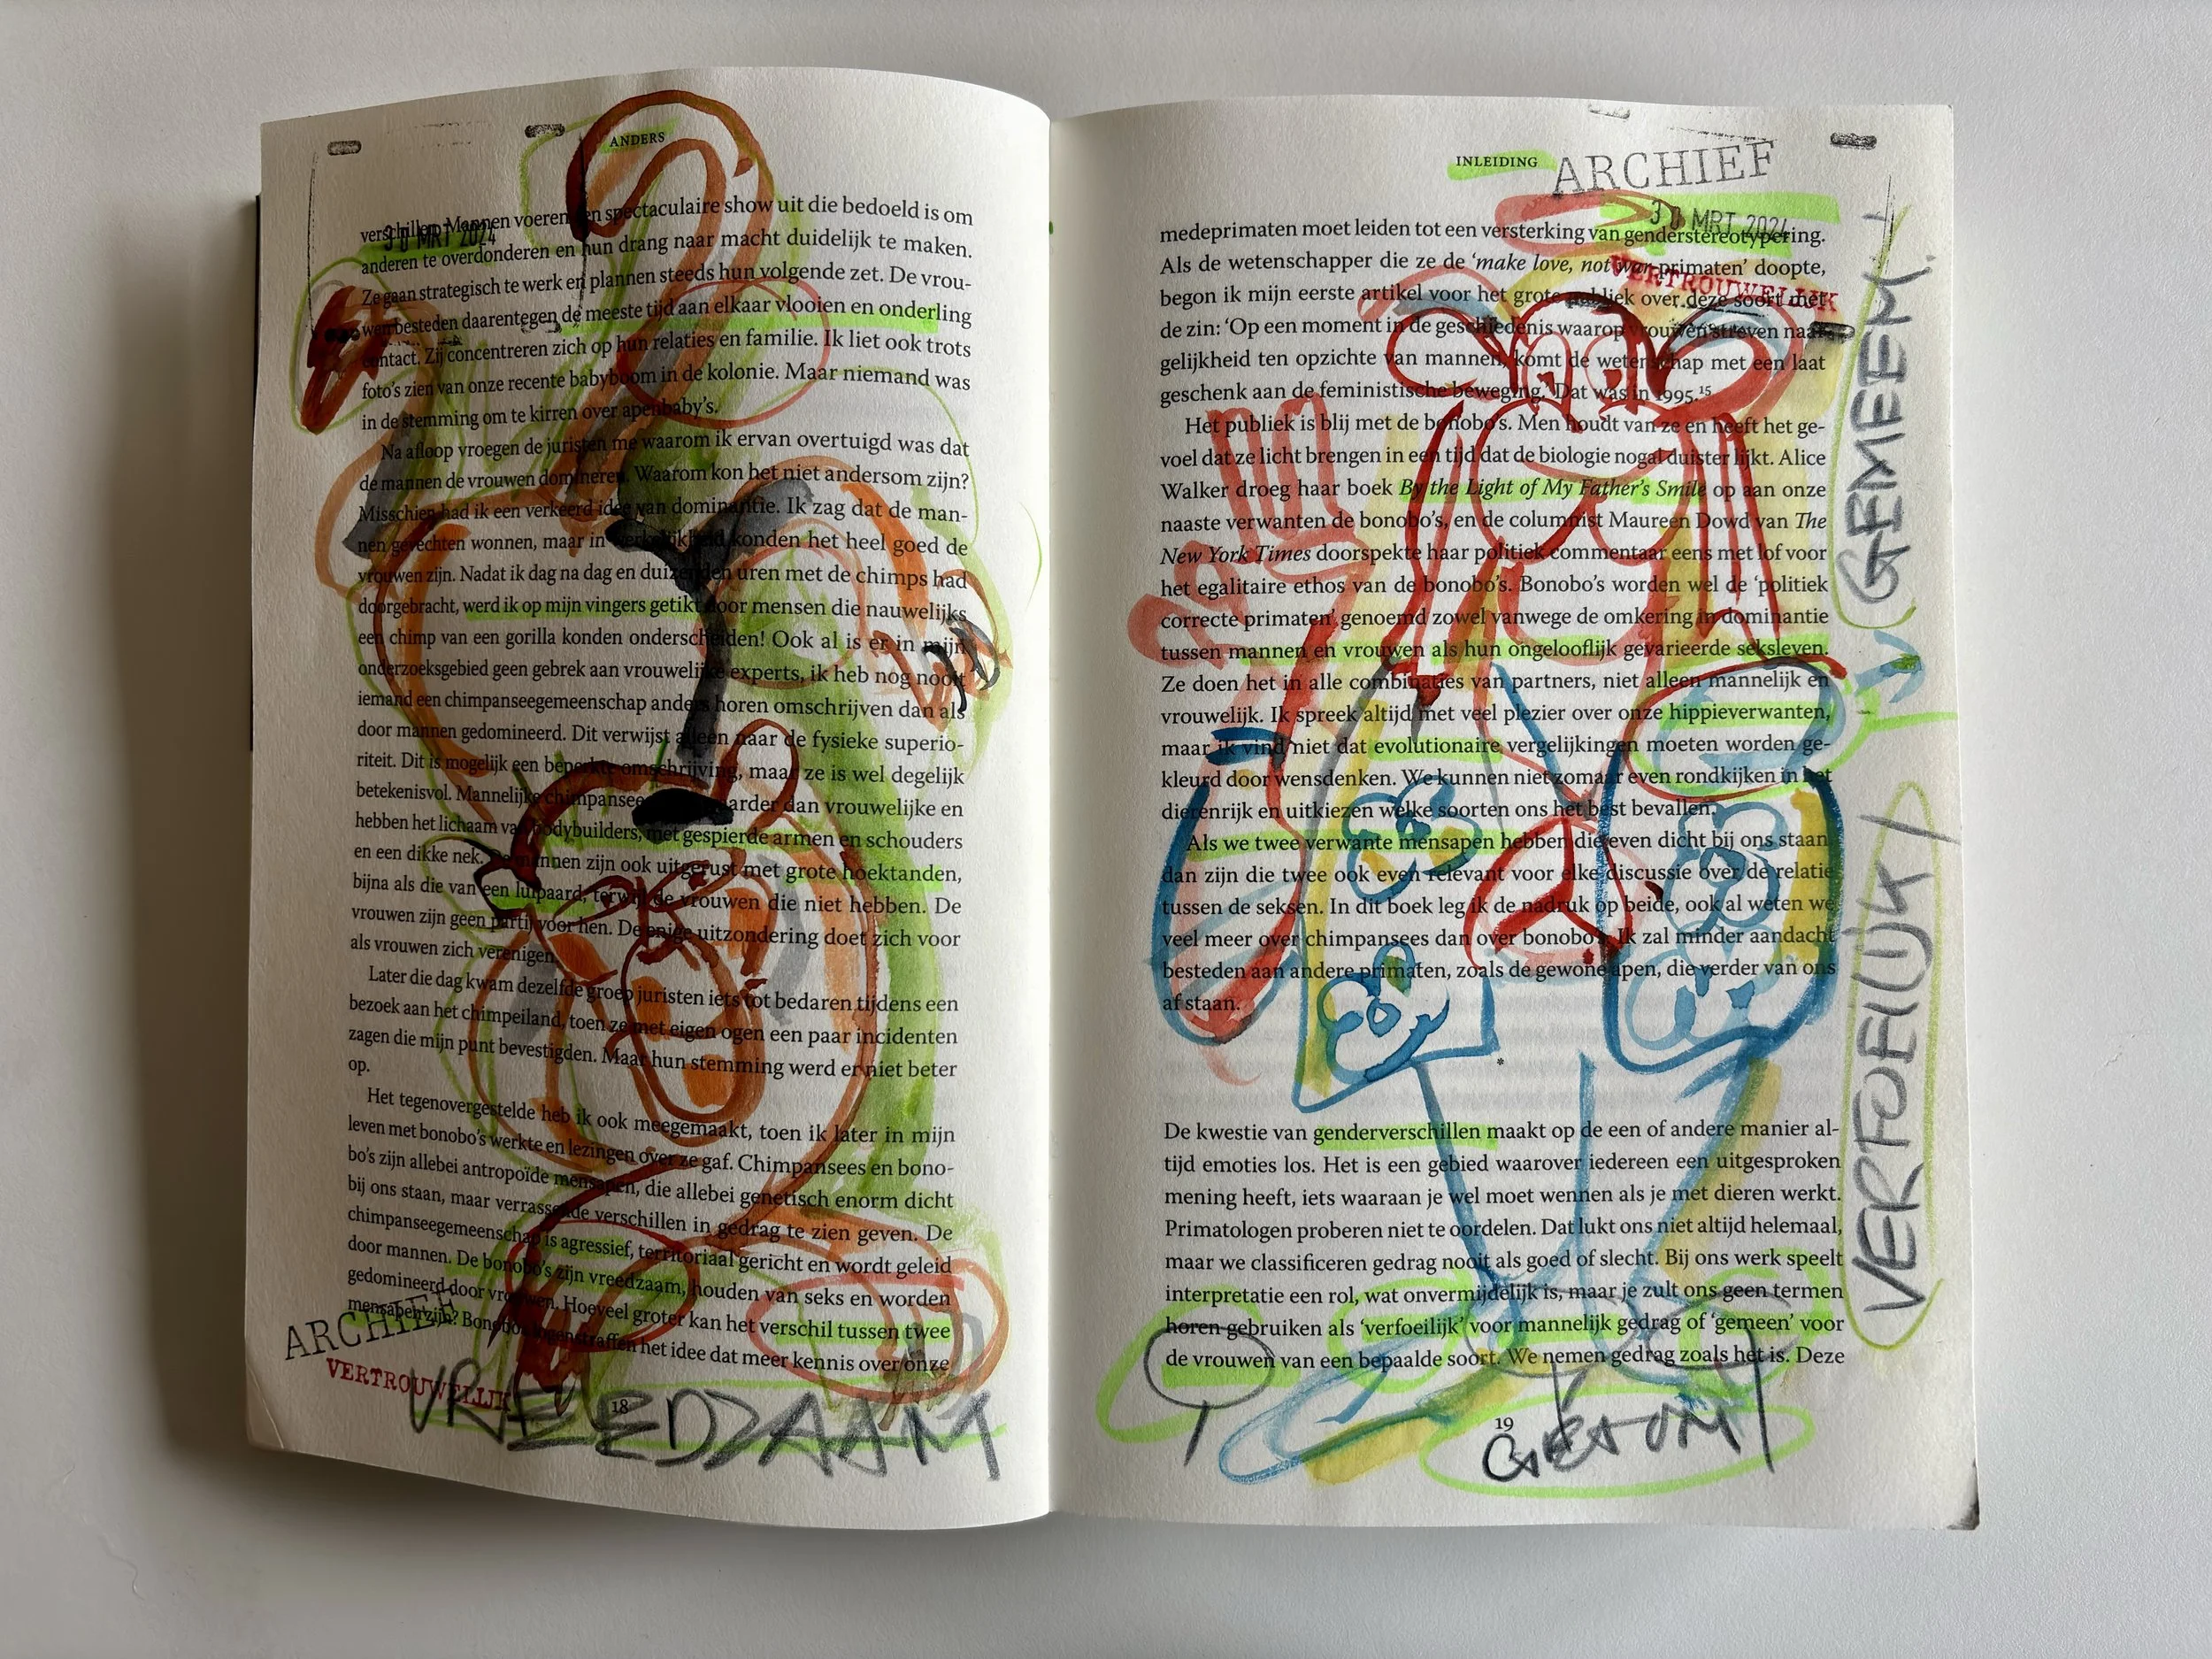 ANDERS
30 MRT 2024
verschillen. Mannen voeren een spectaculaire show uit die bedoeld is om
anderen te overdonderen en hun drang naar macht duidelijk te maken.
Ze gaan strategisch te werk en plannen steeds hun volgende zet. De vrou-
wen besteden daarentegen de meeste tijd aan elkaar vlooien en onderling
contact. Zij concentreren zich op hun relaties en familie. Ik liet ook trots
foto's zien van onze recente babyboom in de kolonie. Maar niemand was
in de stemming om te kirren over apenbaby's.
Na afloop vroegen de juristen me waarom ik ervan overtuigd was dat
de mannen de vrouwen domineren. Waarom kon het niet andersom zijn?
Misschien had ik een verkeerd idee van dominantie. Ik zag dat de man-
nen gevechten wonnen, maar in werkelijkheid konden het heel goed de
vrouwen zijn. Nadat ik dag na dag en duizenden uren met de chimps had
doorgebracht, werd ik op mijn vingers getikt door mensen die nauwelijks
een chimp van een gorilla konden onderscheiden! Ook al is er in mijn
onderzoeksgebied geen gebrek aan vrouwelijke experts, ik heb nog nooit
iemand een chimpanseegemeenschap anders horen omschrijven dan als
door mannen gedomineerd. Dit verwijst alleen naar de fysieke superio-
riteit. Dit is mogelijk een beperkte omschrijving, maar ze is wel degelijk
betekenisvol. Mannelijke chimpansees zwaarder dan vrouwelijke en
hebben het lichaam van bodybuilders, met gespierde armen en schouders
en een dikke nek. De mannen zijn ook uitgerust met grote hoektanden,
bijna als die van een luipaard, terwijl de vrouwen die niet hebben. De
vrouwen zijn geen partij voor hen. De enige uitzondering doet zich voor
als vrouwen zich verenigen.
Later die dag kwam dezelfde groep juristen iets tot bedaren tijdens een
bezoek aan het chimpeiland, toen ze met eigen ogen een paar incidenten
zagen die mijn punt bevestigden. Maar hun stemming werd er niet beter
op.
Het tegenovergestelde heb ik ook meegemaakt, toen ik later in mijn
leven met bonobo's werkte en lezingen over ze gaf. Chimpansees en bono-
bo's zijn allebei antropoïde mensapen, die allebei genetisch enorm dicht
bij ons staan, maar verrassende verschillen in gedrag te zien geven. De
chimpanseegemeenschap is agressief, territoriaal gericht en wordt geleid
door mannen. De bonobo's zijn vreedzaam, houden van seks en worden
gedomineerd door vrouwen. Hoeveel groter kan het verschil tussen twee
mensapen zijn? Bonobo's logenstraffen het idee dat meer kennis over onze
ARCHIEF
VERTROUWELIJK
18
VREEDZAAM
INLEIDING
ARCHIEF
30 MRT 2024
VERTROUWELIJK
medeprimaten moet leiden tot een versterking van genderstereotypering.
Als de wetenschapper die ze de 'make love, not war-primaten' doopte,
begon ik mijn eerste artikel voor het grote publiek over deze soort met
de zin: 'Op een moment in de geschiedenis waarop vrouwen streven naar
gelijkheid ten opzichte van mannen, komt de wetenschap met een laat
geschenk aan de feministische beweging.' Dat was in 1995.15
Het publiek is blij met de bonobo's. Men houdt van ze en heeft het ge-
voel dat ze licht brengen in een tijd dat de biologie nogal duister lijkt. Alice
Walker droeg haar boek By the Light of My Father's Smile op aan onze
naaste verwanten de bonobo's, en de columnist Maureen Dowd van The
New York Times doorspekte haar politiek commentaar eens met lof voor
het egalitaire ethos van de bonobo's. Bonobo's worden wel de 'politiek
correcte primaten' genoemd zowel vanwege de omkering in dominantie
tussen mannen en vrouwen als hun ongelooflijk gevarieerde seksleven.
Ze doen het in alle combinaties van partners, niet alleen mannelijk en
vrouwelijk. Ik spreek altijd met veel plezier over onze hippieverwanten,
maar ik vind niet dat evolutionaire vergelijkingen moeten worden ge-
kleurd door wensdenken. We kunnen niet zomaar even rondkijken in het
dierenrijk en uitkiezen welke soorten ons het best bevallen.
Als we twee verwante mensapen hebben die even dicht bij ons staan,
dan zijn die twee ook even relevant voor elke discussie over de relatie
tussen de seksen. In dit boek leg ik de nadruk op beide, ook al weten we
veel meer over chimpansees dan over bonobo's. Ik zal minder aandacht
besteden aan andere primaten, zoals de gewone apen, die verder van ons
af staan.
*
De kwestie van genderverschillen maakt op de een of andere manier al-
tijd emoties los. Het is een gebied waarover iedereen een uitgesproken
mening heeft, iets waaraan je wel moet wennen als je met dieren werkt.
Primatologen proberen niet te oordelen. Dat lukt ons niet altijd helemaal,
maar we classificeren gedrag nooit als goed of slecht. Bij ons werk speelt
interpretatie een rol, wat onvermijdelijk is, maar je zult ons geen termen
horen gebruiken als 'verfoeilijk' voor mannelijk gedrag of 'gemeen' voor
de vrouwen van een bepaalde soort. We nemen gedrag zoals het is. Deze
19
GEMEEN.
VERFOEILIJK